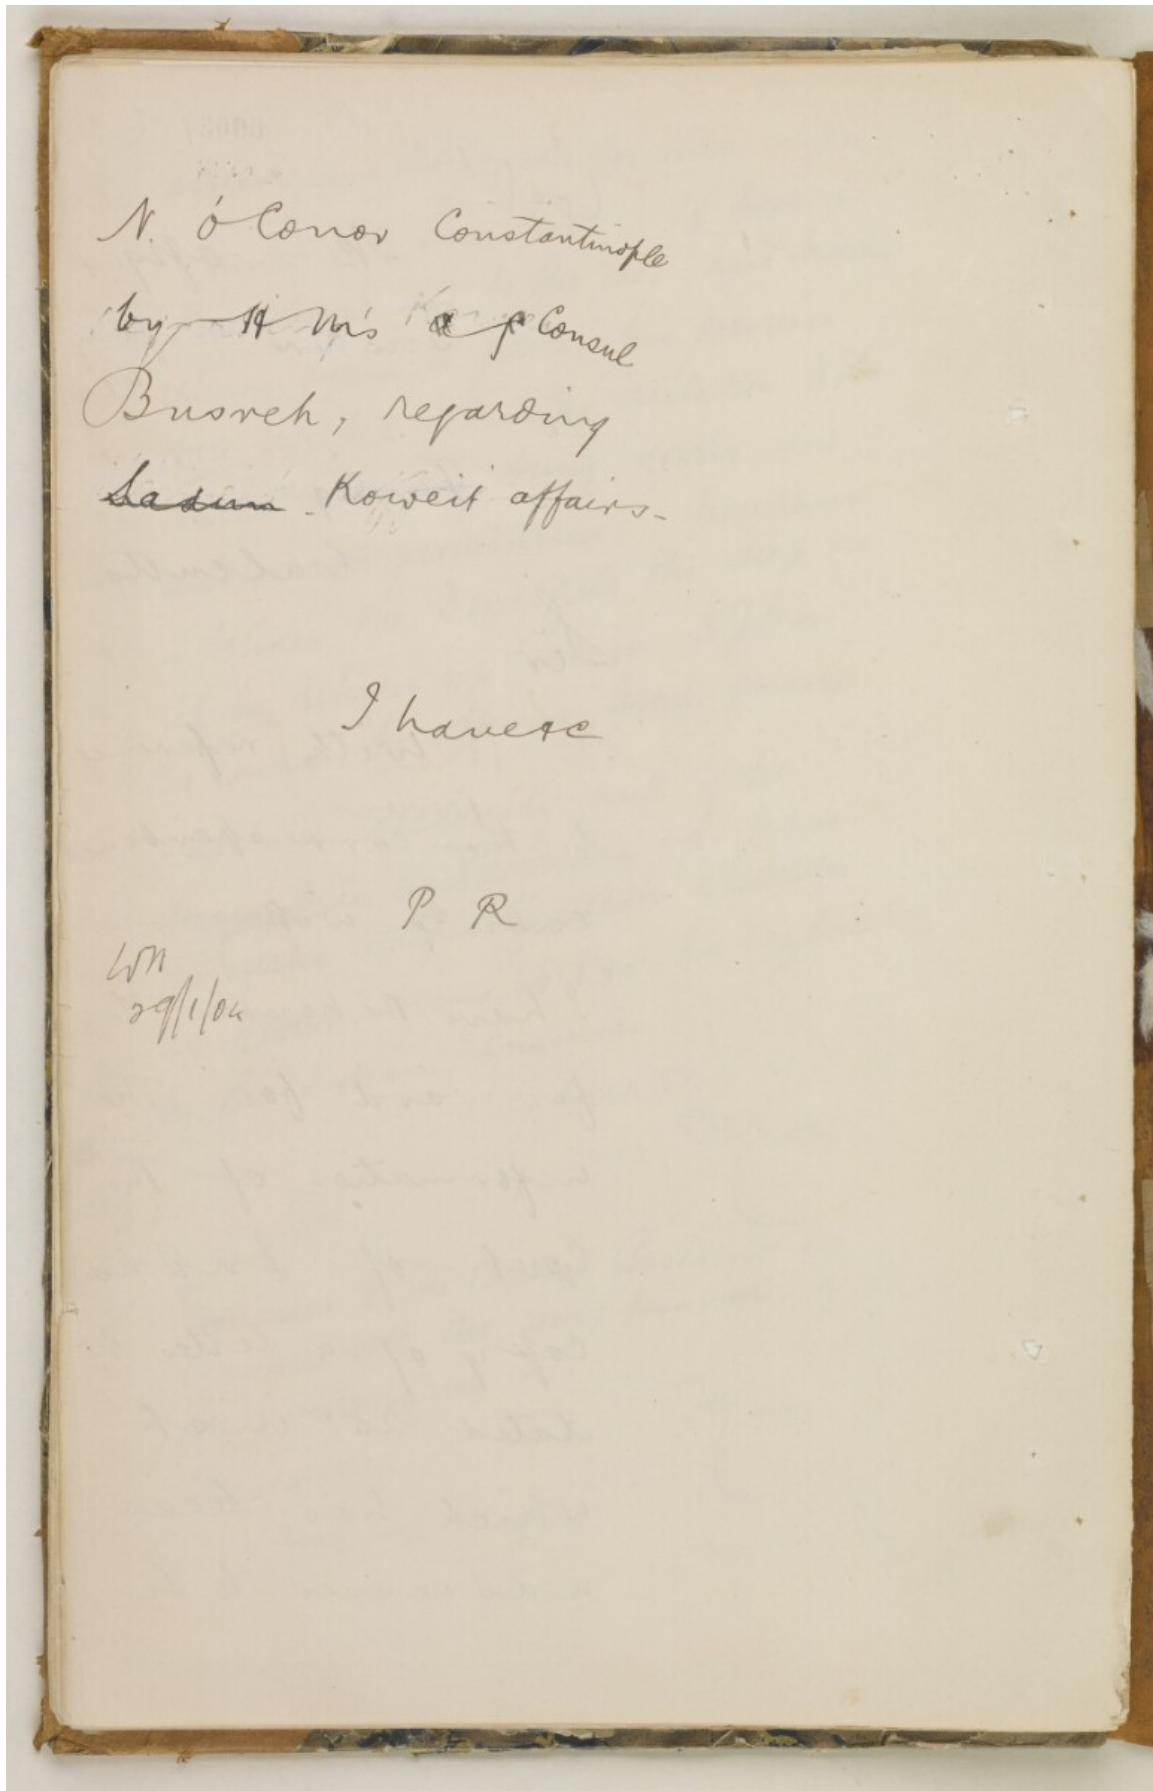 N. O'Conor Constantinople
by H M's Consul
Busreh, regarding
Sadun Koweit affairs-
I have &c
P R
29/1/04